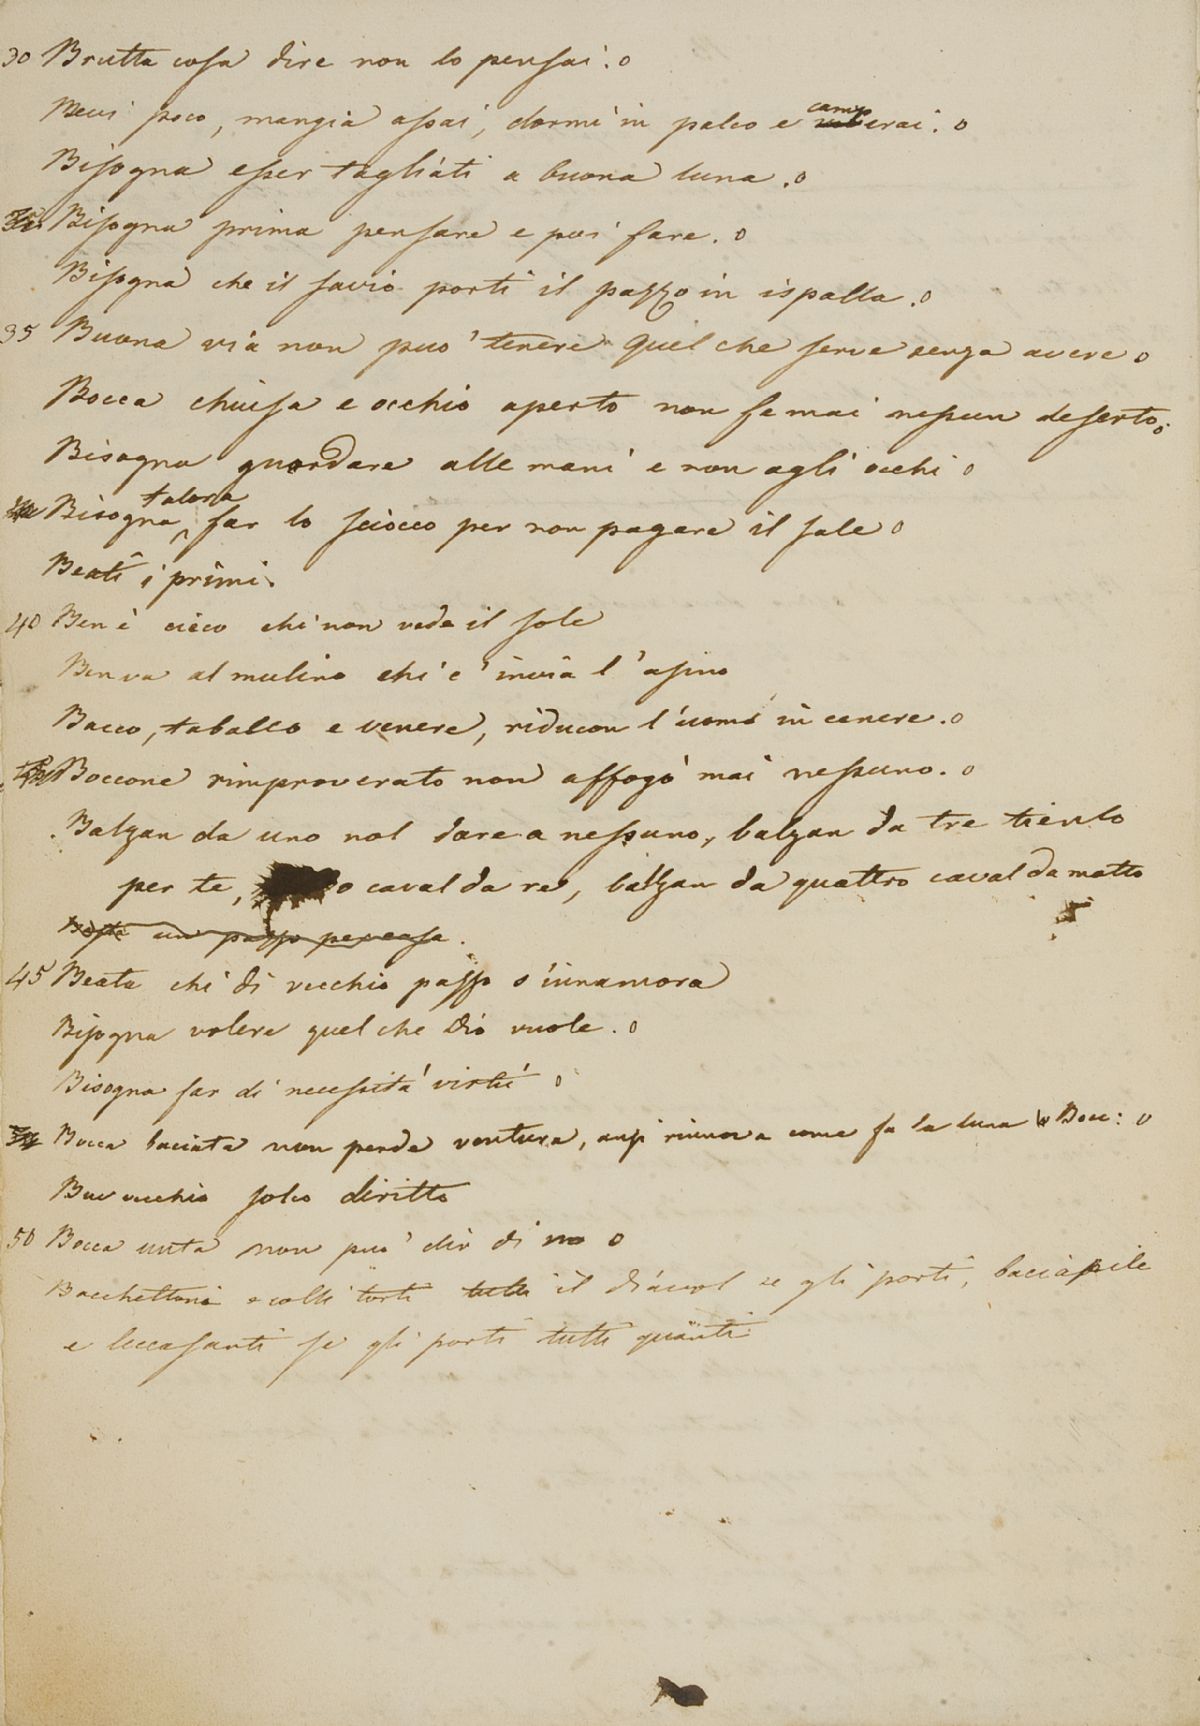 30 Brutta cosa dire non lo pensai. o
Bevi poco, mangia assai, dormi in palco e camperai. o
Bisogna esser tagliati a buona luna. o
Bisogna prima pensare e poi fare. o
Bisogna che il savio porti il pazzo in ispalla. o
35 Buona via non può tenere quel che serve senza avere o
Bocca chiusa e occhio aperto non fe mai nessun deserto. o
Bisogna guardare alle mani e non agli occhi o
Bisogna talora far lo sciocco per non pagare il sale o
Beati i primi.
40 Ben è cieco chi non vede il sole
Ben va al mulino chi c'invia l'asino
Bacco, taballo e venere, riducon l'uomo in cenere. o
Boccone rimproverato non affogò mai nessuno. o
Balzan da uno nol dare a nessuno, balzan da tre tienlo
per te, o caval da re, balzan da quattro caval da matto
Basta un pazzo per casa.
45 Beata chi di vecchio pazzo s'innamora
Bisogna volere quel che Dio vuole. o
Bisogna far di necessità virtù o
Bocca baciata non perde ventura, anzi rinnova come fa la luna Bocc: o
Bue vecchio solco diritto
50 Bocca unta non può dir di no o
Bacchettoni e colli torti tutti il diavol se gli porti, baciapile
e leccasanti se gli porti tutti quanti